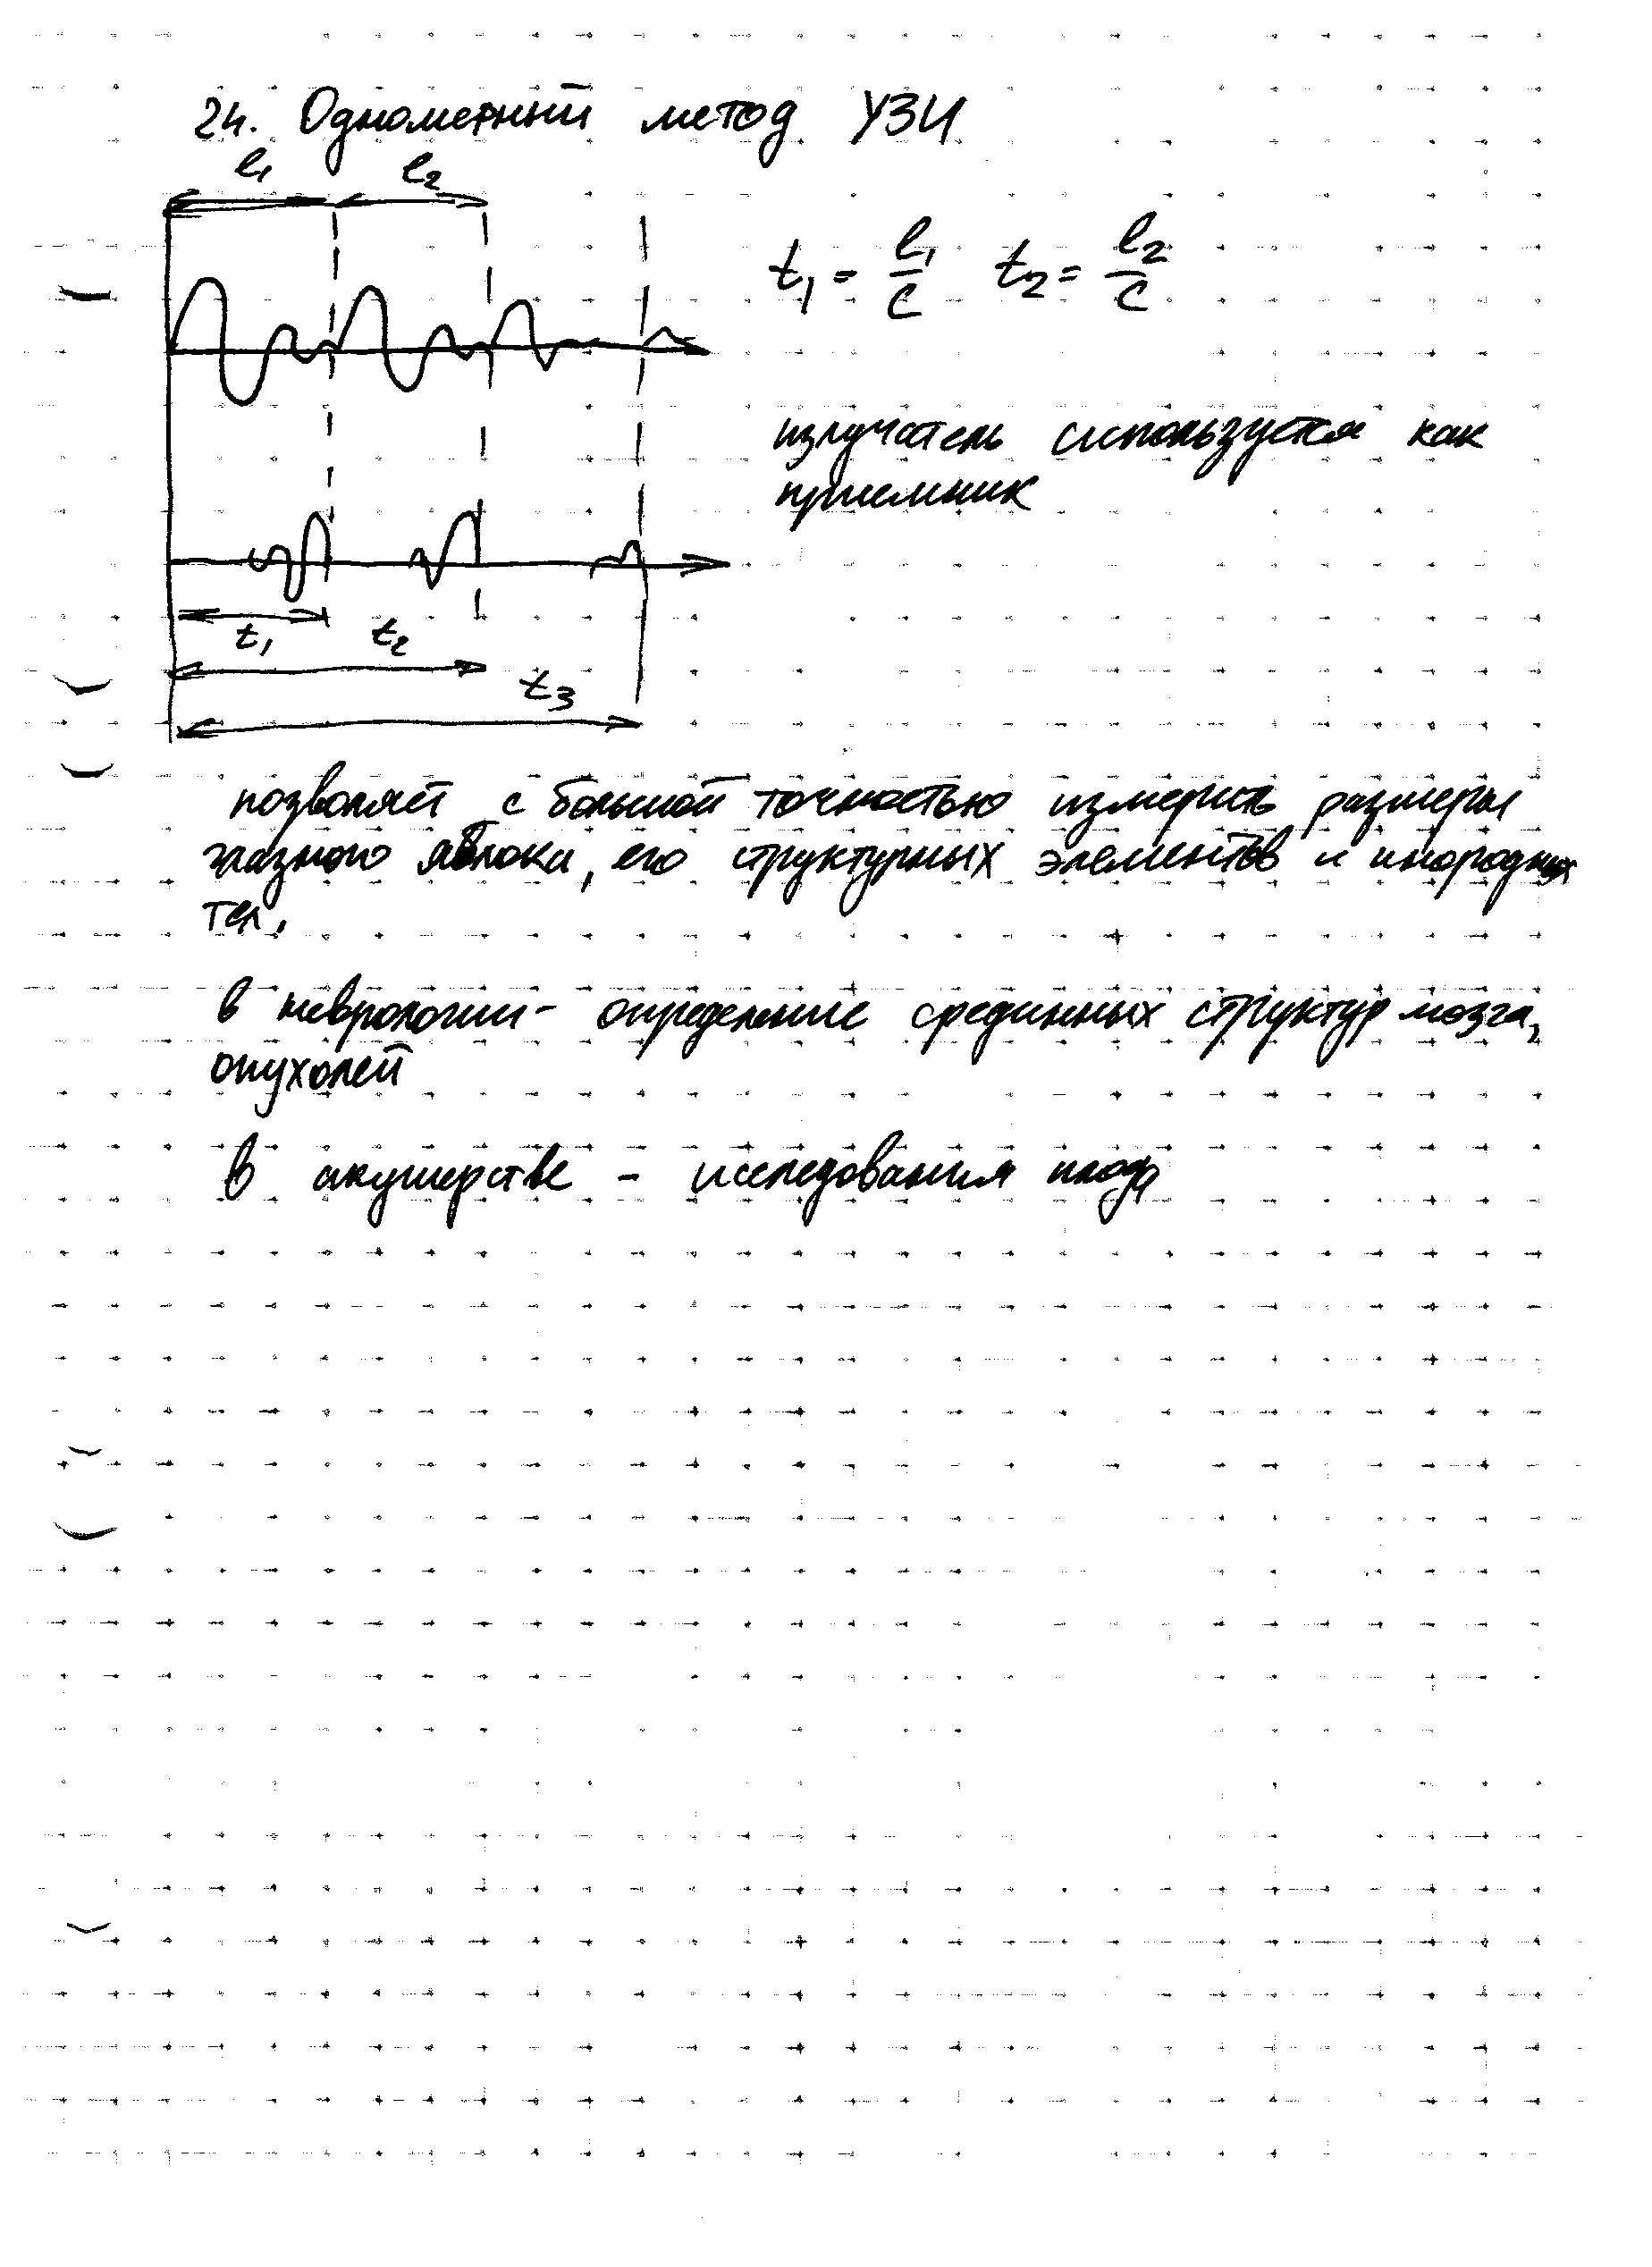 24. Одномерный метод УЗИ
l₁ l₂
t₁ = l₁/c t₂ = l₂/c
излучатель используется как
приемник
t₁ t₂
t₃
позволяет с большой точностью измерить размеры
глазного яблока, его структурных элементов и инородных
тел.
в неврологии - определение срединных структур мозга,
опухолей
в акушерстве - исследования плода